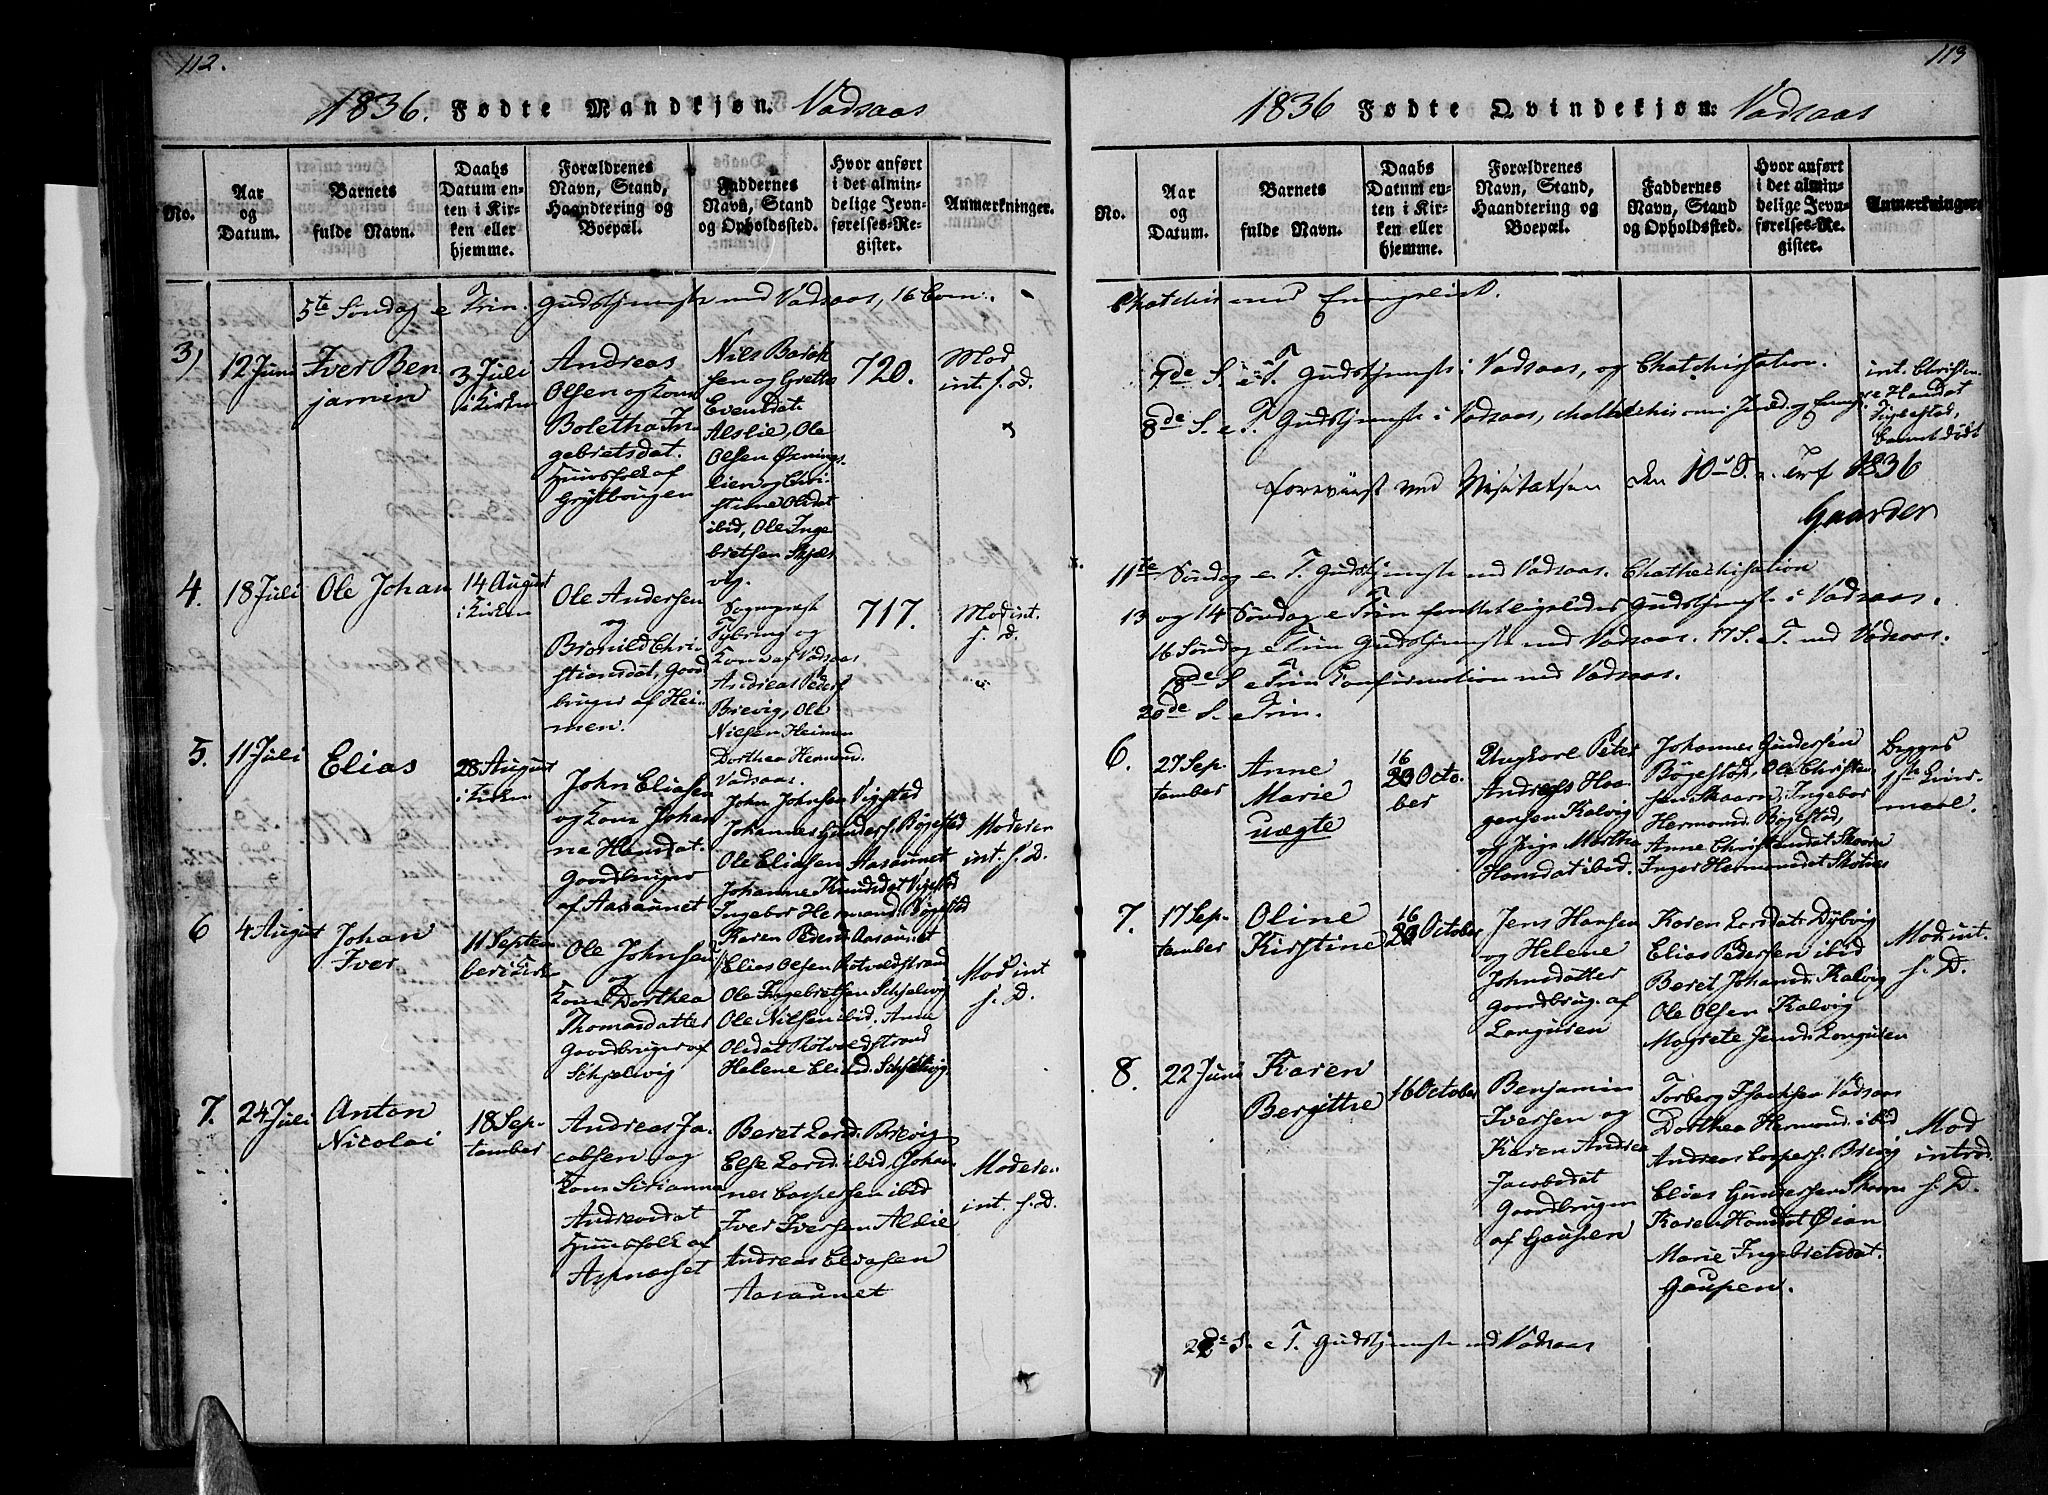 112.
1836. Fødte Mandkjøn. Vadsaas
No.
Aar
og
Datum.
Barnets
fulde Navn.
Daabs
Datum en-
ten i Kir-
ken eller
hjemme.
Forældrenes
Navn, Stand,
Haandtering og
Boepæl.
Faddernes
Navn, Stand
og Opholdssted.
Hvor anført
i det almin-
delige Jevn-
førelses-Re-
gister.
Anmærkninger.
5te Søndag e Trin. Gudstjeneste ved Vadsaas, 16 Com.
3)
12 Juni
Iver Ben
jamin
3 Juli
i Kirken
Andreas
Olsen og Kone
Boletha In
gebretsdat.
Huusfolk af
Grytbougen
Nils
sen og Grethe
Evendat.
Alslie, Ole
Olsen
lien og Chri
stine Olsdat
ibid, Ole Inge
bretsen Skjels
vig.
720.
Mod
int. s. d.
4.
18 Juli
Ole Johan
14 August
i Kirken
Ole Andersen
og
Bronild Chri-
stiansdat, Gaard
bruger af Hei-
men.
Sognepræst
Tybring og
Kone af Vadsaas
Andreas Peders.
Brevig, Ole
Nilsen Heimen
Dorthea Hermand.
Vadsaas.
717.
Mod int.
s. d.
5.
11 Juli
Elias
28 August
i Kirken
John Eliasen
og Kone Johan
ne Hansdat.
Gaardbruger
af Aasaunet
John Johnsen Vigestad
Johannes Gunders. Bøgestad
Ole Eliasen Aasaunet
Johanne Knudsdat Vigestad
Ingebor Hermand. Bøgestad
Karen Pedersd. Aasaunet
Moderen
int. s. D.
6
4 August
Johan
Iver
11 Septem
ber i Kirk
Ole Johnsen
og
Kone Dorthea
Thomasdatter
Gaardbruger af
Schjelvig
Elias Olsen Rotvoldstrand
Ole Ingebretsen Schjelvig
Ole Nilsen ibid. Anne
Olsdat Rotvoldstrand
Helene Eliasd. Schjelvig
Mod int
s. D.
7.
24 Juli
Anton
Nicolai
18 Sep-
tember
Andreas Ja-
cobsen og
Kone Sirianna
Andreasdat
Huusfolk af
Aspnæsset
Beret Larsd. Brevig
Else Larsd. ibid Johan
nes Caspersen ibid
Iver Iversen Alslie
Andreas Eliasen
Aasaunet
Moderen
int. s. D.
113
1836 Fødte Qvindekjøn: Vadsaas
No.
Aar
og
Datum.
Barnets
fulde Navn.
Daabs
Datum en-
ten i Kir-
ken eller
hjemme.
Forældrenes
Navn, Stand,
Haandtering og
Boepæl.
Faddernes
Navn, Stand
og Opholdssted.
Hvor anført
i det almin-
delige Jevn-
førelses-Re-
gister.
Anmærkninger.
Chatechis over Evangeliet.
7de S. e T. Gudstjeneste i Vadsaas, og Chatechisation.
8de S. e T. Gudstjeneste i Vadsaas,
int. Christen-
Hansdat
Barnet dødt
foreviist ved Visitatsen den 10 S. e. Trf 1836
Gaarder
11te Søndag e. T. Gudstjeneste ved Vadsaas. Chathechisation
13 og 14 Søndag e Trin forrettet ligeledes Gudstjeneste i Vadsaas.
16 Søndag e Trin Gudstjeneste ved Vadsaas. 17 S. e T. ved Vadsaas.
18de S. e Trin Confirmation ved Vadsaas.
20de S. e Trin.
6.
27 Sep-
tember
Anne
Marie
uægte
16
23 Octo-
ber
Ungkarl Peter
Andreas Haa-
gensen Kalvig
og Pige Martha
Hansdat ibid.
Johannes Gundersen
Bøgestad, Ole Christen
sen Skaarn, Ingebor
Hermand. Bøgestad,
Anne Christendat Skaarn
Inger Hermansdat Skotnes
Begges
1ste Leier-
maal.
7.
17 Sep-
tember
Oline
Kirstine
16
23 October
Jens Hansen
og Helene
Johnsdatter
Gaardbrug. af
Languren
Karen Larsdat. Dybvig
Elias Pedersen ibid
Beret Johansd. Kalvig
Ole Olsen Kalvig
Magrete Jensd. Languren
Mod. int.
s. D.
8.
22 Juni
Karen
Bergitthe
16 October
Benjamin
Iversen og
Karen Andrea
Jacobsdat
Gaardbruger
af Gaupen
Torberg Isachsen Vadsaas
Dorthea Hermand. ibid
Andreas Caspers. Brevig
Elias Gundersen Skaarn
Karen Hansdat Øian
Marie Ingebretsdat.
Gaupen.
Mod
introd.
s. D.
22de S. e T. Gudstjeneste ved Vadsaas